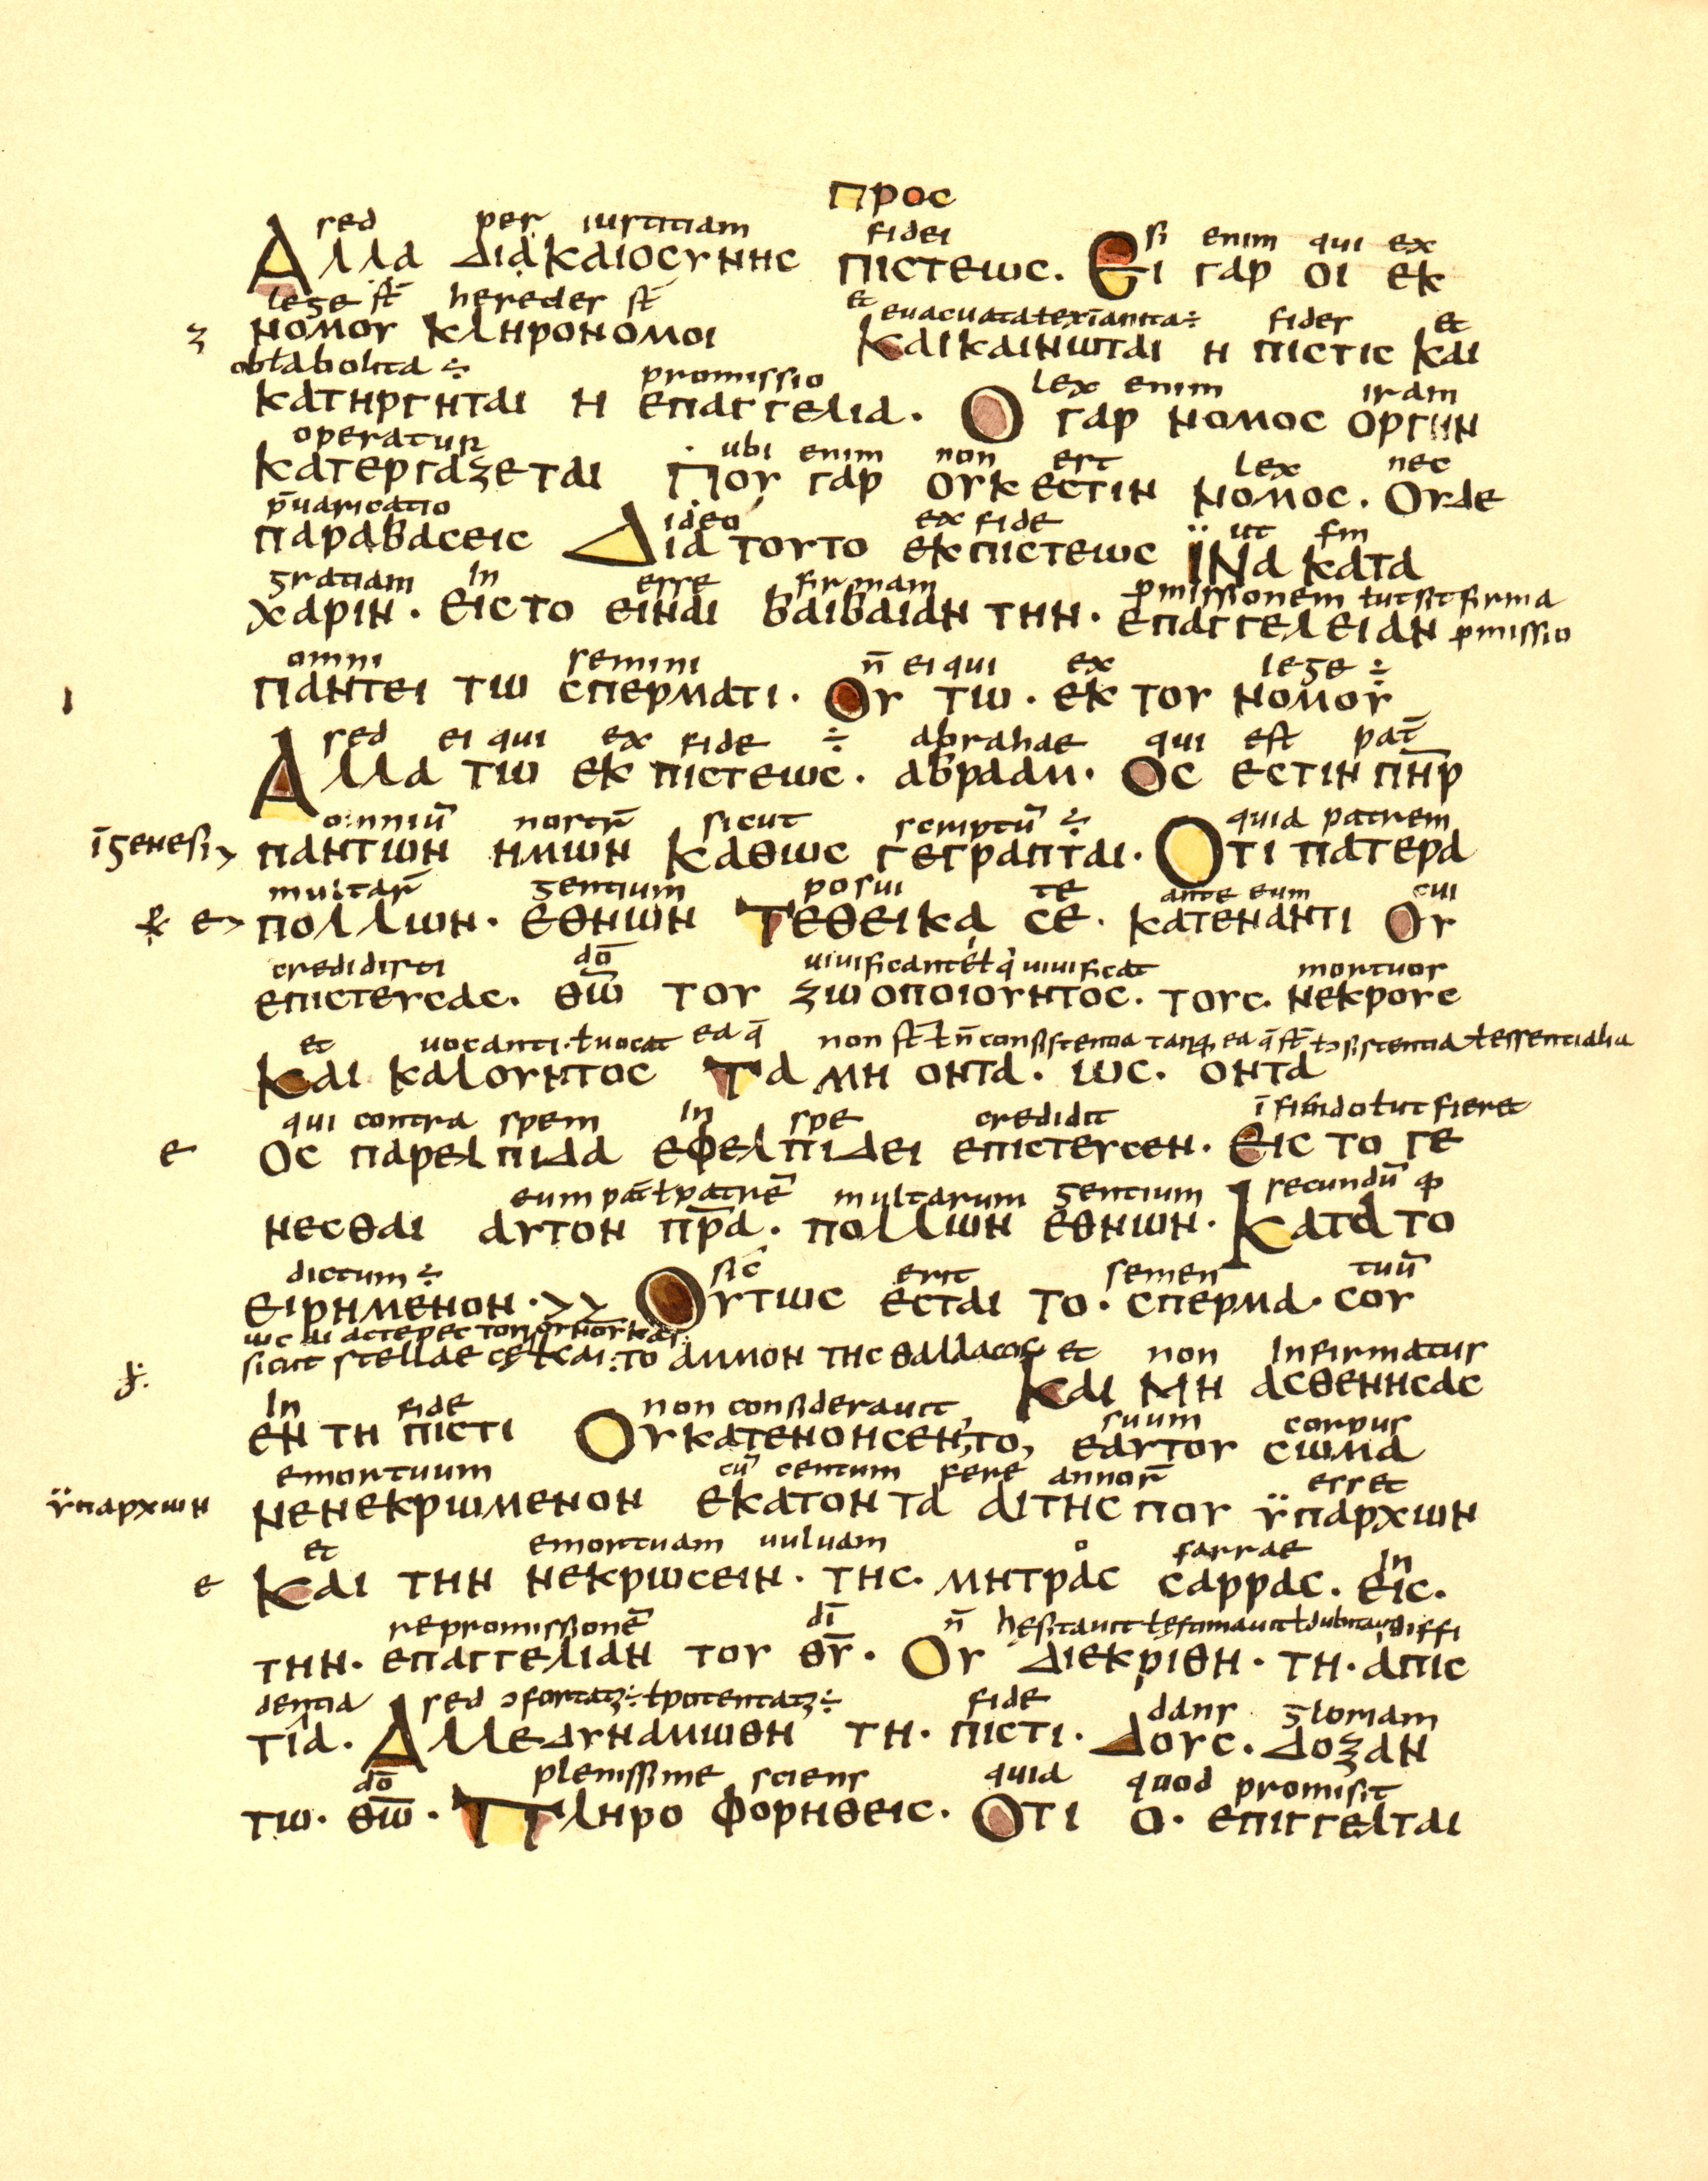 προс
sed per iustitiam fidei si enim qui ex
Αλλα Διακαιοсυνηс πιсτεωс. Ει γαρ οι εκ
lege st̄ heredes st̄ et euacuata ł exīanita ÷ fides et
ʒ νομου κληρονομοι Και καινωται η πιсτιс και
ł abolita ÷ promissio lex enim iram
κατηργηται η επαγγελια. Ο γαρ νομοс οργην
operatur ubi enim non est lex nec
κατεργαζεται Που γαρ ουκ εсτιν νομοс. Ουδε
p̄uaricatio ideo ex fide ut sm
παραβαсειс Δια τουτο εκ πιсτεωс ϊΝα κατα
gratiam in esse firmam ꝓmissionem ł ut sit firma
χαριν. ειсτο ειναι βαιβαιαν την. επαγγελειαν ꝓmissio
omni semini n̄ ei qui ex lege ÷
ι παντει τω сπερματι. Ου τω. εκ του νομου
sed ei qui ex fide ÷ abrahae qui est pat̄
Αλλα τω εκ πιсτεωс. αβρααμ. Οс εсτιν πη̄ρ
omniū nostr̄ sicut scriptū ÷ quia patrem
ī genesi παντων ημων καθωс γεγραπται. Οτι πατερα
multar̄ gentium posui te ante eum cui
ε> πολλων. εθνων Τεθεικα сε. κατεναντι Ου
credidisti dō uiuificante ł q' uiuificat mortuos
επιсτευсαс. θω̄ του ζωοποιουντοс. τουс. νεκρουс
et uocanti. ł uocat ea q̄ non st̄ ł n̄ consistentia tanq̄ ea q̄ st̄ ł ɔsistentia ł essentialia
Και καλουντοс Τα μη οντα. ωс. οντα
qui contra spem in spe credidit ł ut fieret
ε Οс παρελπιδα εφελπιδει επιсτευсεν. Ειс το γε
eum pat̄ ł patrē multarum gentium secundū ꝙ
νεсθαι αυτον πρ̄α. πολλων εθνων. Κατα το
dictum ÷ sic erit semen tuū
ειρημενον .>> Ουτωс εсται το. сπερμα. сου
ωс αι αсτερεс του ουνου και
sicut stellae cę ł και: το αμμον τηс θαλλαссηс et non infirmatus
Και Μη αсθενηсαс
in fide non considerauit suum corpus
εν τη πιсτι Ου κατενοηсεν, το, εαυτου сωμα
emortuum cū centum fere annor̄ esset
ϋπαρχων νενεκρωμενον εκατοντα αιτηс που ϋπαρχων
et emortuam uuluam sarrae in
ε Και την νεκρωсειν. τηс. μητραс сαρραс. ειс.
repromissionē dī n̄ hesitauit ł estimauit ł dubitauit diffi
την. επαγγελιαν του θῡ. Ου Διεκριθη. τη. απιс
dentia sed ɔfortatꝫ ÷ ł potentatꝫ ÷ fide dans gloriam
τια. Αλλεδυναμωθη τη. πιсτι. Δουс. Δοξαν
dō plenissime sciens quia quod promisit
τω. θω̄. Πληρο φορηθειс. Οτι ο. επιγγελται